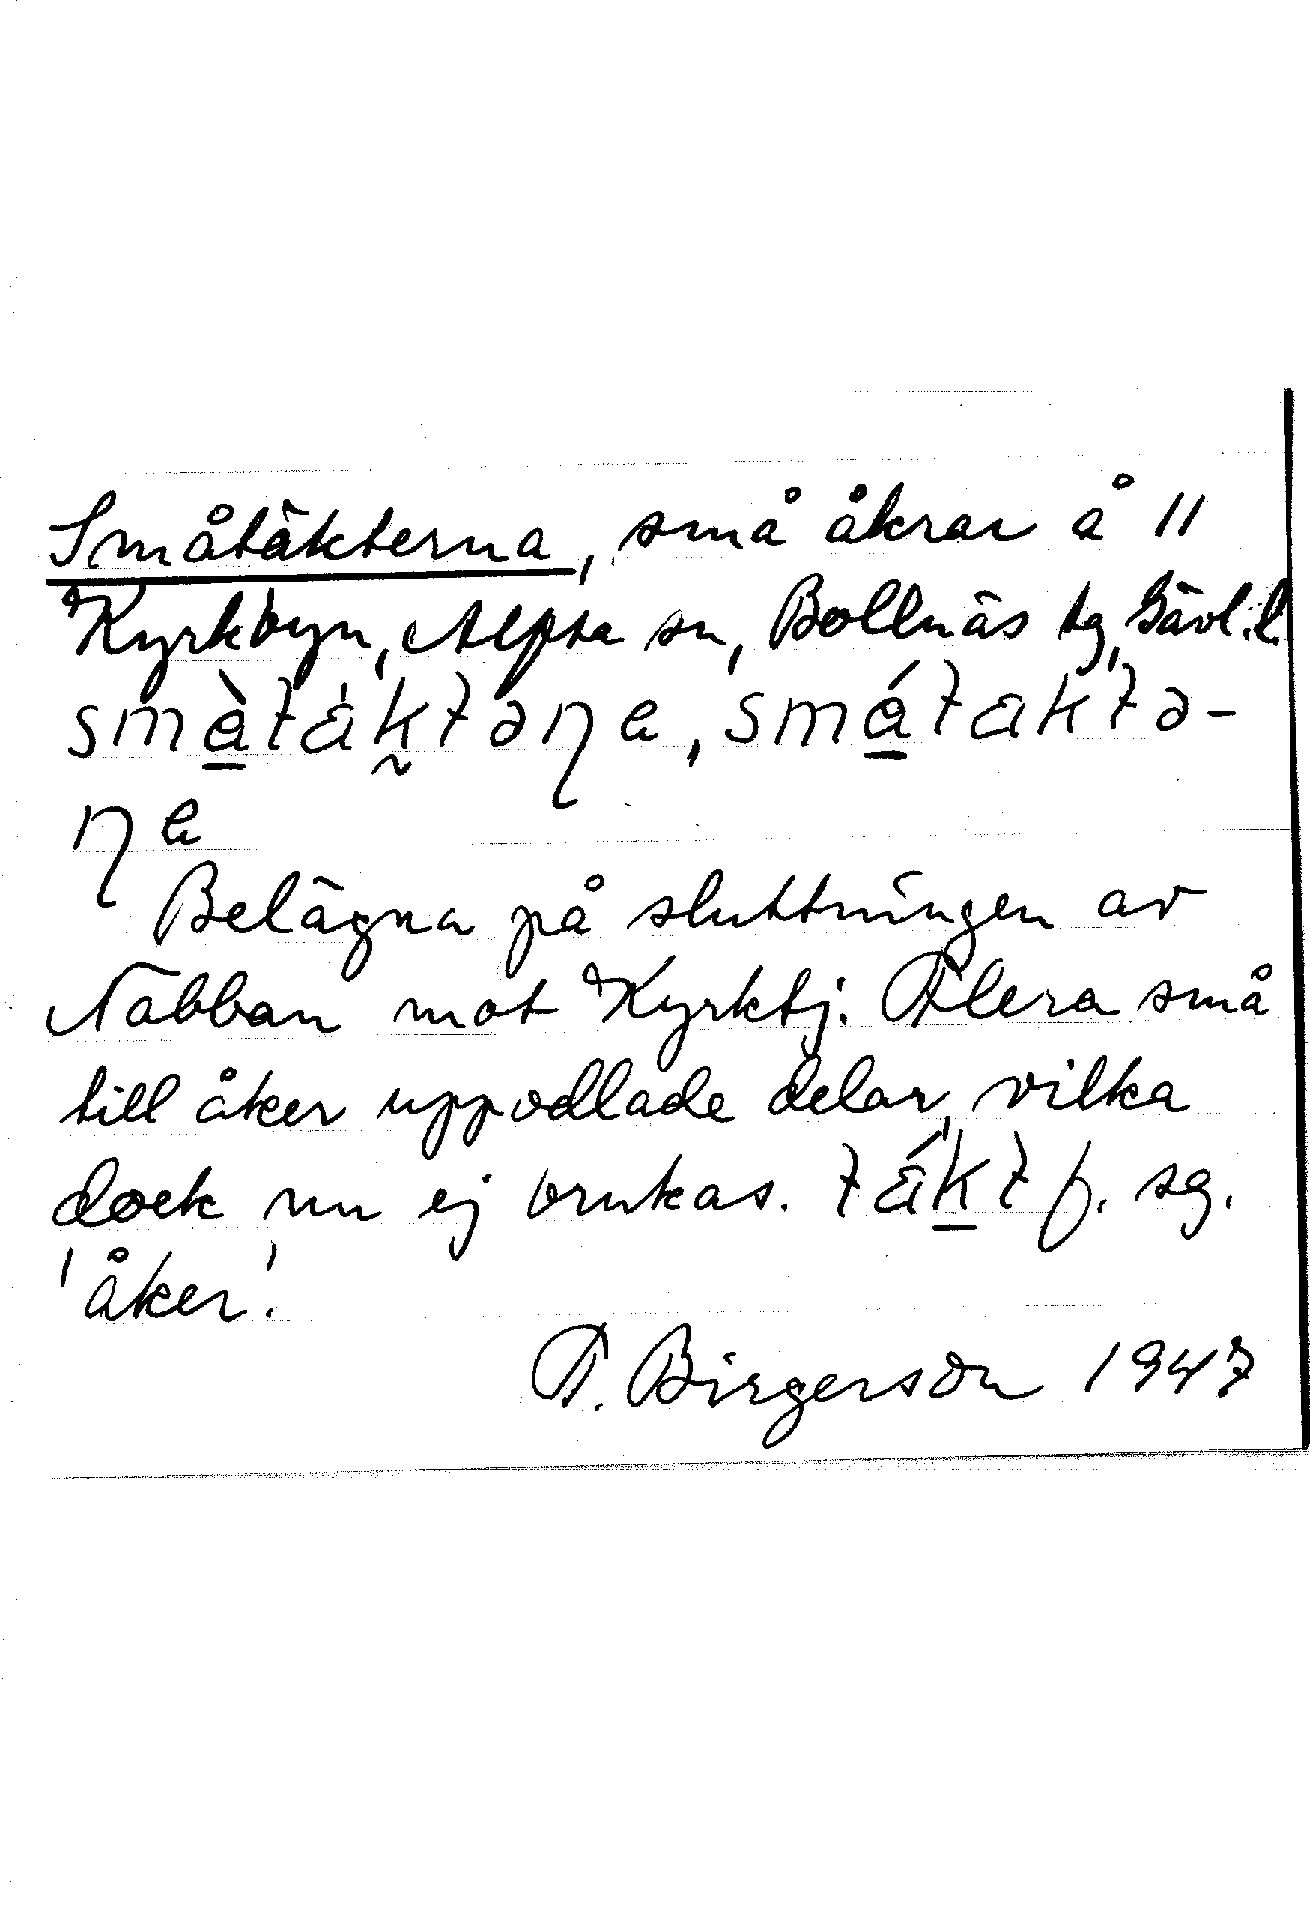 Småtäkterna, små åkrar å 11
Kyrkbyn, Alfta sn, Bollnäs tg, Gävl. l.
smàtäktəŋa, smátäktə-
ŋa
Belägna på sluttningen av
Nabban mot Kyrktj. Flera små
till åker uppodlade delar, vilka
dock nu ej brukas. täkt f. sg.
'åker'.
F. Birgerson 1947